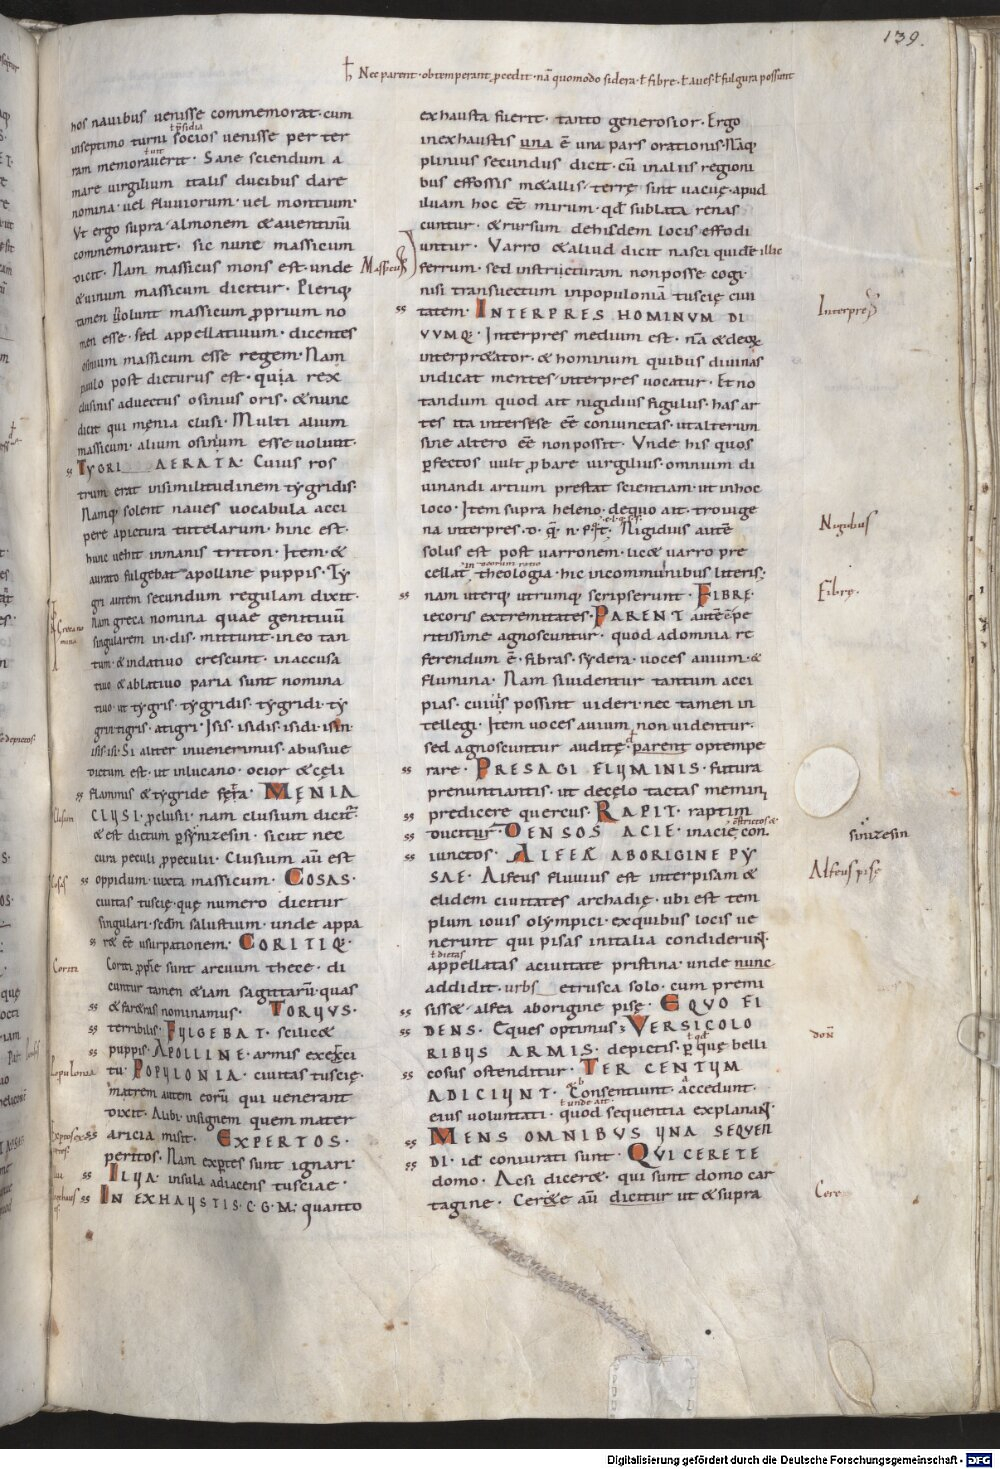 139.
Nec parent · obtemperant pcedit · nā quomodo sidera · ł fibre · ł aues ł fulgura possunt
hos nauibus uenisse commemorat · cum
ł psidia
inseptimo turni socios uenisse per ter
ł unt
ram memorauerit · Sane sciendum a
mare uirgilium italis ducibus dare
nomina · uel fluuiorum · uel montium ·
Vt ergo supra · almonem & auentinū
commemorauit · sic nunc massicum
dicit · Nam massicus mons est · unde
& uinum massicum dicitur · Pleriq;
tamen uolunt massicum pprium no
men esse · sed appellatiuum · dicentes
osinium massicum esse regem · Nam
paulo post dicturus est · quia rex
clusinis aduectus osinius oris · & nunc
dicit qui menia clusi · Multi alium
massicum · alium osinium esse uolunt ·
TYGRI AERATA · Cuius ros
trum erat insimilitudinem tygridis ·
Namq; solent naues uocabula acci
pere apictura tutelarum · hinc est ·
hunc uehit inmanis triton · Item · &
aurato fulgebat apolline puppis · Ty
gri autem secundum regulam dixit ·
Nam greca nomina quae genitiuū
singularem in · dis · mittunt · ineo tan
tum · & indatiuo crescunt · inaccusa
tiuo & ablatiuo paria sunt nomina
tiuo · ut tygris · tygridis · tygridi · ty
grin tigris · atigri · Isis · isidis · isidi · isin ·
isis · isi · Si aliter inuenerimus · abusiue
dictum est · ut inlucano · ocior & celi
flammis & tygride feta · MĘNIA
CLVSI · pclusii · nam clusium dicit
& est dictum p synizesin · sicut nec
cura peculi ppeculii · Clusium aū est
oppidum iuxta massicum · COSAS ·
ciuitas tuscię · quę numero dicitur
singulari · secdm salustium · unde appa
r& eē usurpationem · CORITIQ; ·
Coriti pprie sunt arcuum thece · di
cuntur tamen &iam sagittarū · quas
& far&ras nominamus · TORVVS ·
terribilis · FVLGEBAT · scilic&
puppis · APOLLINE · armis exerci
tu · POPVLONIA · ciuitas tuscię ·
matrem autem eorū qui uenerant
dixit · Alibi · insignem quem mater
aricia misit · EXPERTOS ·
peritos · Nam exptes sunt ignari ·
ILVA · insula adiacens tusciae ·
IN EXHAVSTIS · C · G · M · quanto
exhausta fuerit · tanto generosior · Ergo
inexhaustis una ē una pars orationis · Naq;
plinius secundus dicit · cū inaliis regioni
bus effossis m&allis · terrę sint uacuę · apud
iluam hoc eē mirum · qd sublata renas
cuntur · & rursum dehisdem locis effodi
untur · Varro & aliud dicit nasci quidē illic
ferrum · sed instricturam non posse cogi ·
nisi transuectum inpopuloniā tuscię ciui
tatem · INTERPRES HOMINVM DI
VVMQ; · Interpres medium est · nā & deoz
interpr&ator · & hominum quibus diuinas
indicat mentes · interpres uocatur · Et no
tandum quod ait nigidius figulus · has ar
tes ita intersese eē coniunctas · ut alterum
sine altero eē non possit · Vnde his quos
pfectos uult pbare uirgilius · omnium di
uinandi artium prestat scientiam · ut inhoc
loco · Item supra heleno · dequo ait · troiuge
na interpres · Nigidius autē
solus est post uarronem · lic& uarro pre
cellat theologia · hic incommunibus literis ·
nam uterq; utrumq; scripserunt · FIBRE ·
iecoris extremitates · PARENT autē pe
ritissime agnoscuntur · quod adomnia re
ferendum ē · fibras · sydera · uoces auium · &
flumina · Nam siuidentur tantum acci
pias · cuius possint uideri · nec tamen in
tellegi · Item uoces auium non uidentur ·
sed agnoscuntur auditę · parent optempe
rare · PRESAGI FLVMINIS · futura
prenuntiantis · ut decelo tactas memini
predicere quercus · RAPIT · raptim
ducitur · DENSOS ACIE · inacie con
iunctos · ALFEĘ ABORIGINE PY
SAE · Alfeus fluuius est interpisam &
elidem ciuitates archadię · ubi est tem
plum iouis olympici · exquibus locis ue
nerunt qui pisas initalia condiderunt ·
ł dictas
appellatas aciuitate pristina · unde nunc
addidit · urbs etrusca solo · cum premi
siss& · alfea aborigine pisę · EQVO FI
DENS · Eques optimus · VERSICOLO
RIBVS ARMIS · depictis · p quę belli
cosus ostenditur · TER CENTVM
ADICIVNT · Consentiunt · accedunt ·
ł unde ait
eius uoluntati · quod sequentia explanant ·
MENS OMNIBVS VNA SEQVEN
DI · id coniurati sunt · QVI CERETE
domo · Acsi dicer& · qui sunt domo car
tagine · Cer&e aū dicitur ut & supra
Massicus
Interpres
Nigidius
Fibrę ·
sinizesin
Alfeus pisę
Cere
Clusium
Cosas
Coriti
Populonia
Digitalisierung gefördert durch die Deutsche Forschungsgemeinschaft - DFG